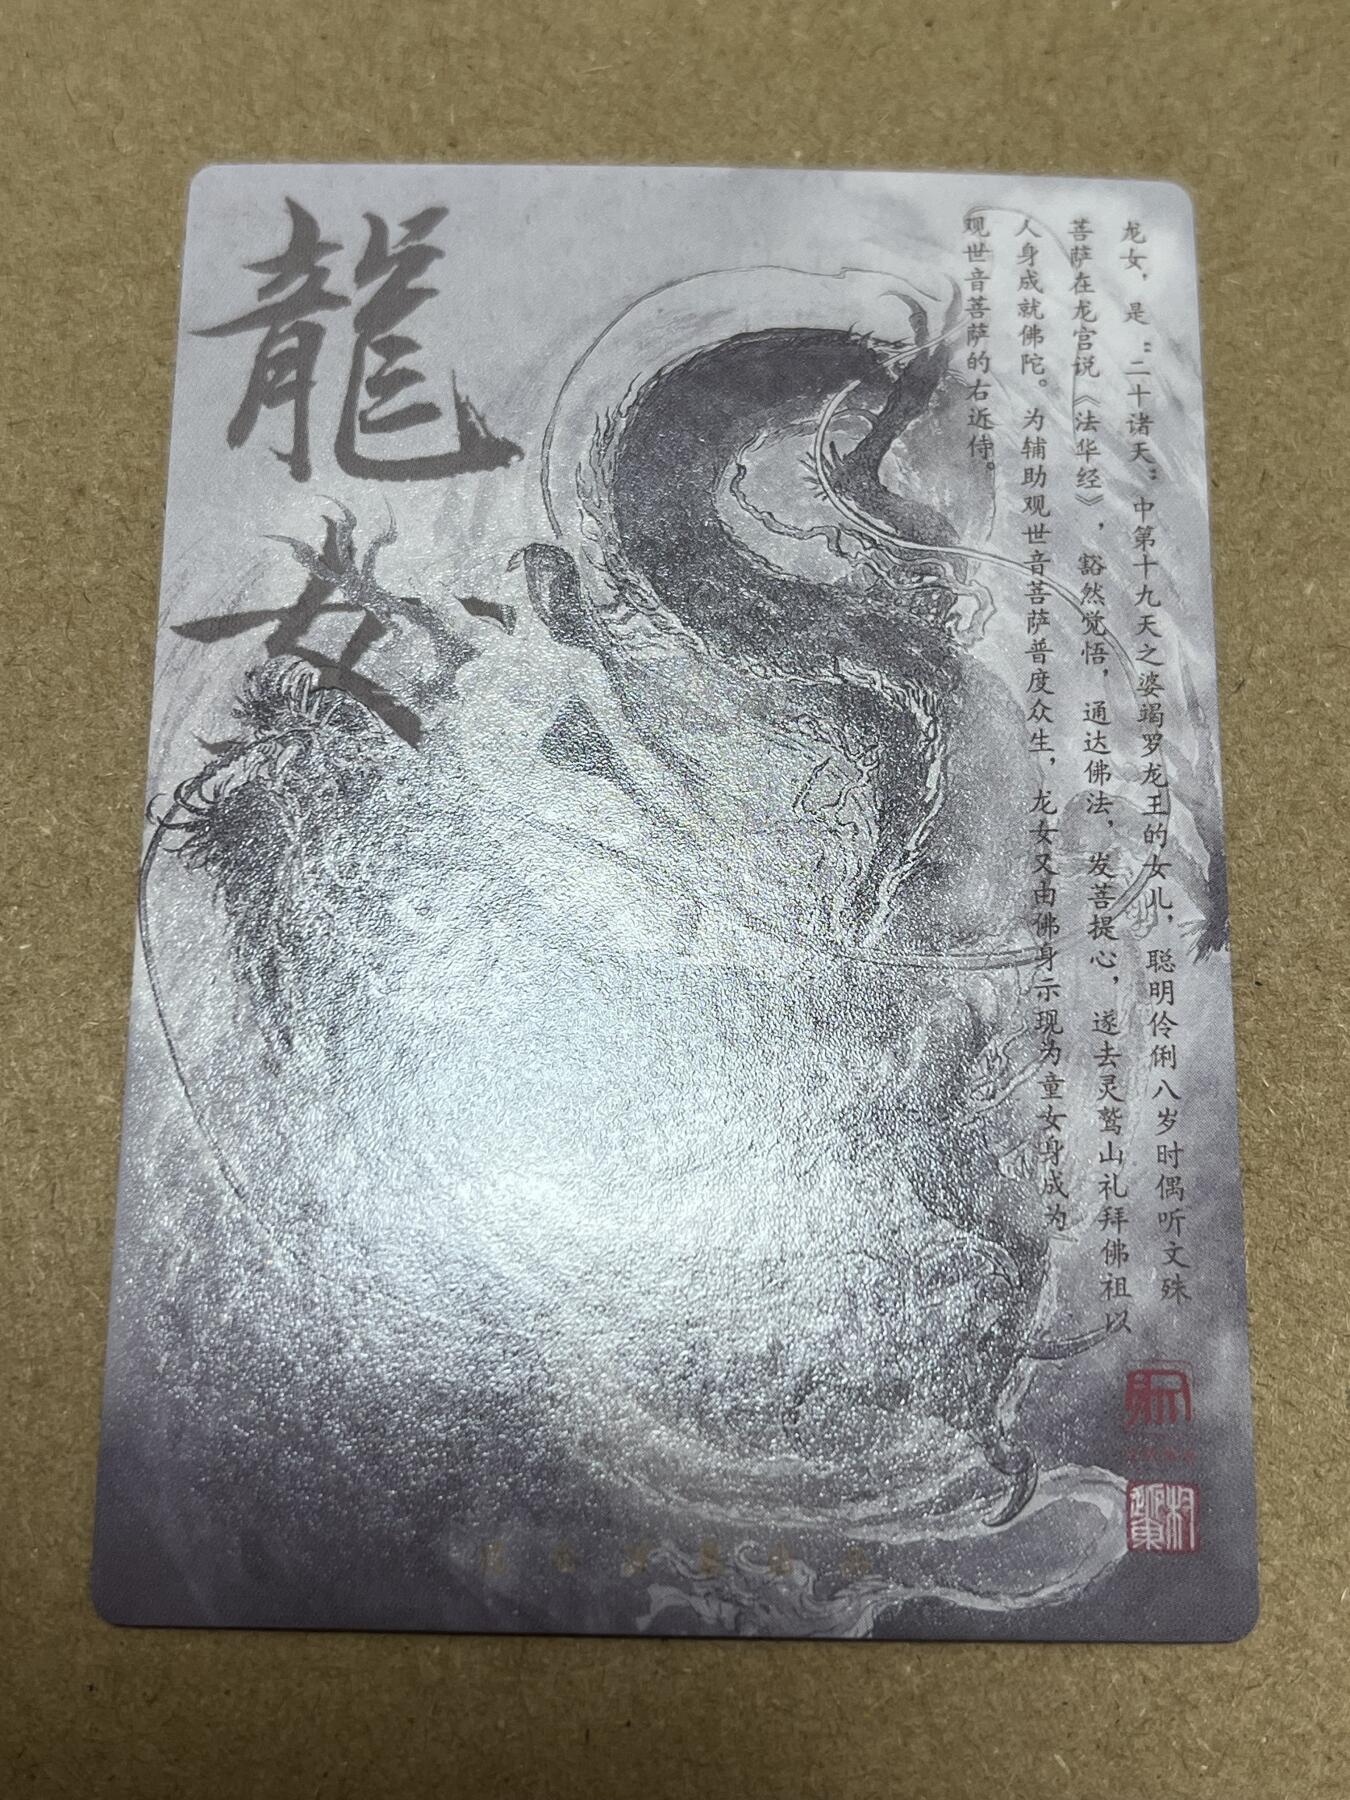 龍女
龙女，是“二十诸天”中第十九天之婆竭罗龙王的女儿，聪明伶俐八岁时偶听文殊
菩萨在龙宫说《法华经》，豁然觉悟，通达佛法，发菩提心，遂去灵鹫山礼拜佛祖以
人身成就佛陀。为辅助观世音菩萨普度众生，龙女又由佛身示现为童女身成为
观世音菩萨的右近侍。